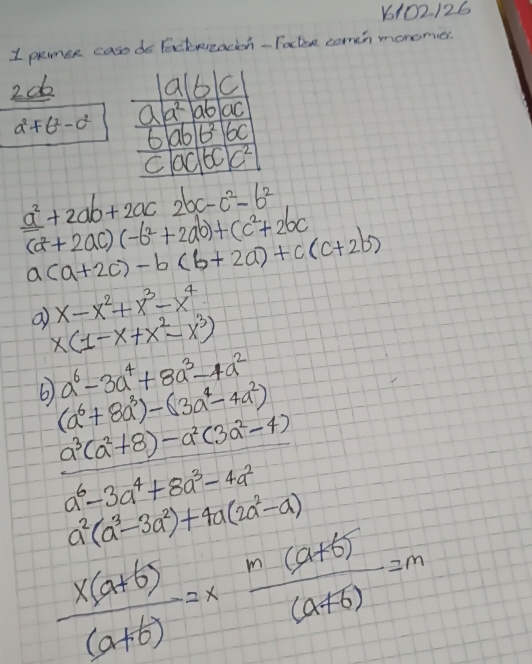 16/02/26
1 primer caso de factorización - Factor común monomio.
2ab
a²+b²-c²
a b c
a a² ab ac
b ab b² bc
c ac bc c²
a² + 2ab + 2ac 2bc - c² - b²
(a² + 2ac) (-b² + 2ab) + (c² + 2bc
a (a + 2c) - b (b + 2a) + c (c + 2b)
a) x - x² + x³ - x⁴
x (1 - x + x² - x³)
b) a⁶ - 3a⁴ + 8a³ - 4a²
(a⁶ + 8a³) - (3a⁴ - 4a²)
a³(a² + 8) - a²(3a² - 4)
a⁶ - 3a⁴ + 8a³ - 4a²
a²(a³ - 3a²) + 4a(2a² - a)
x(a+b) / (a+b) = x m (a+b) / (a+b) = m